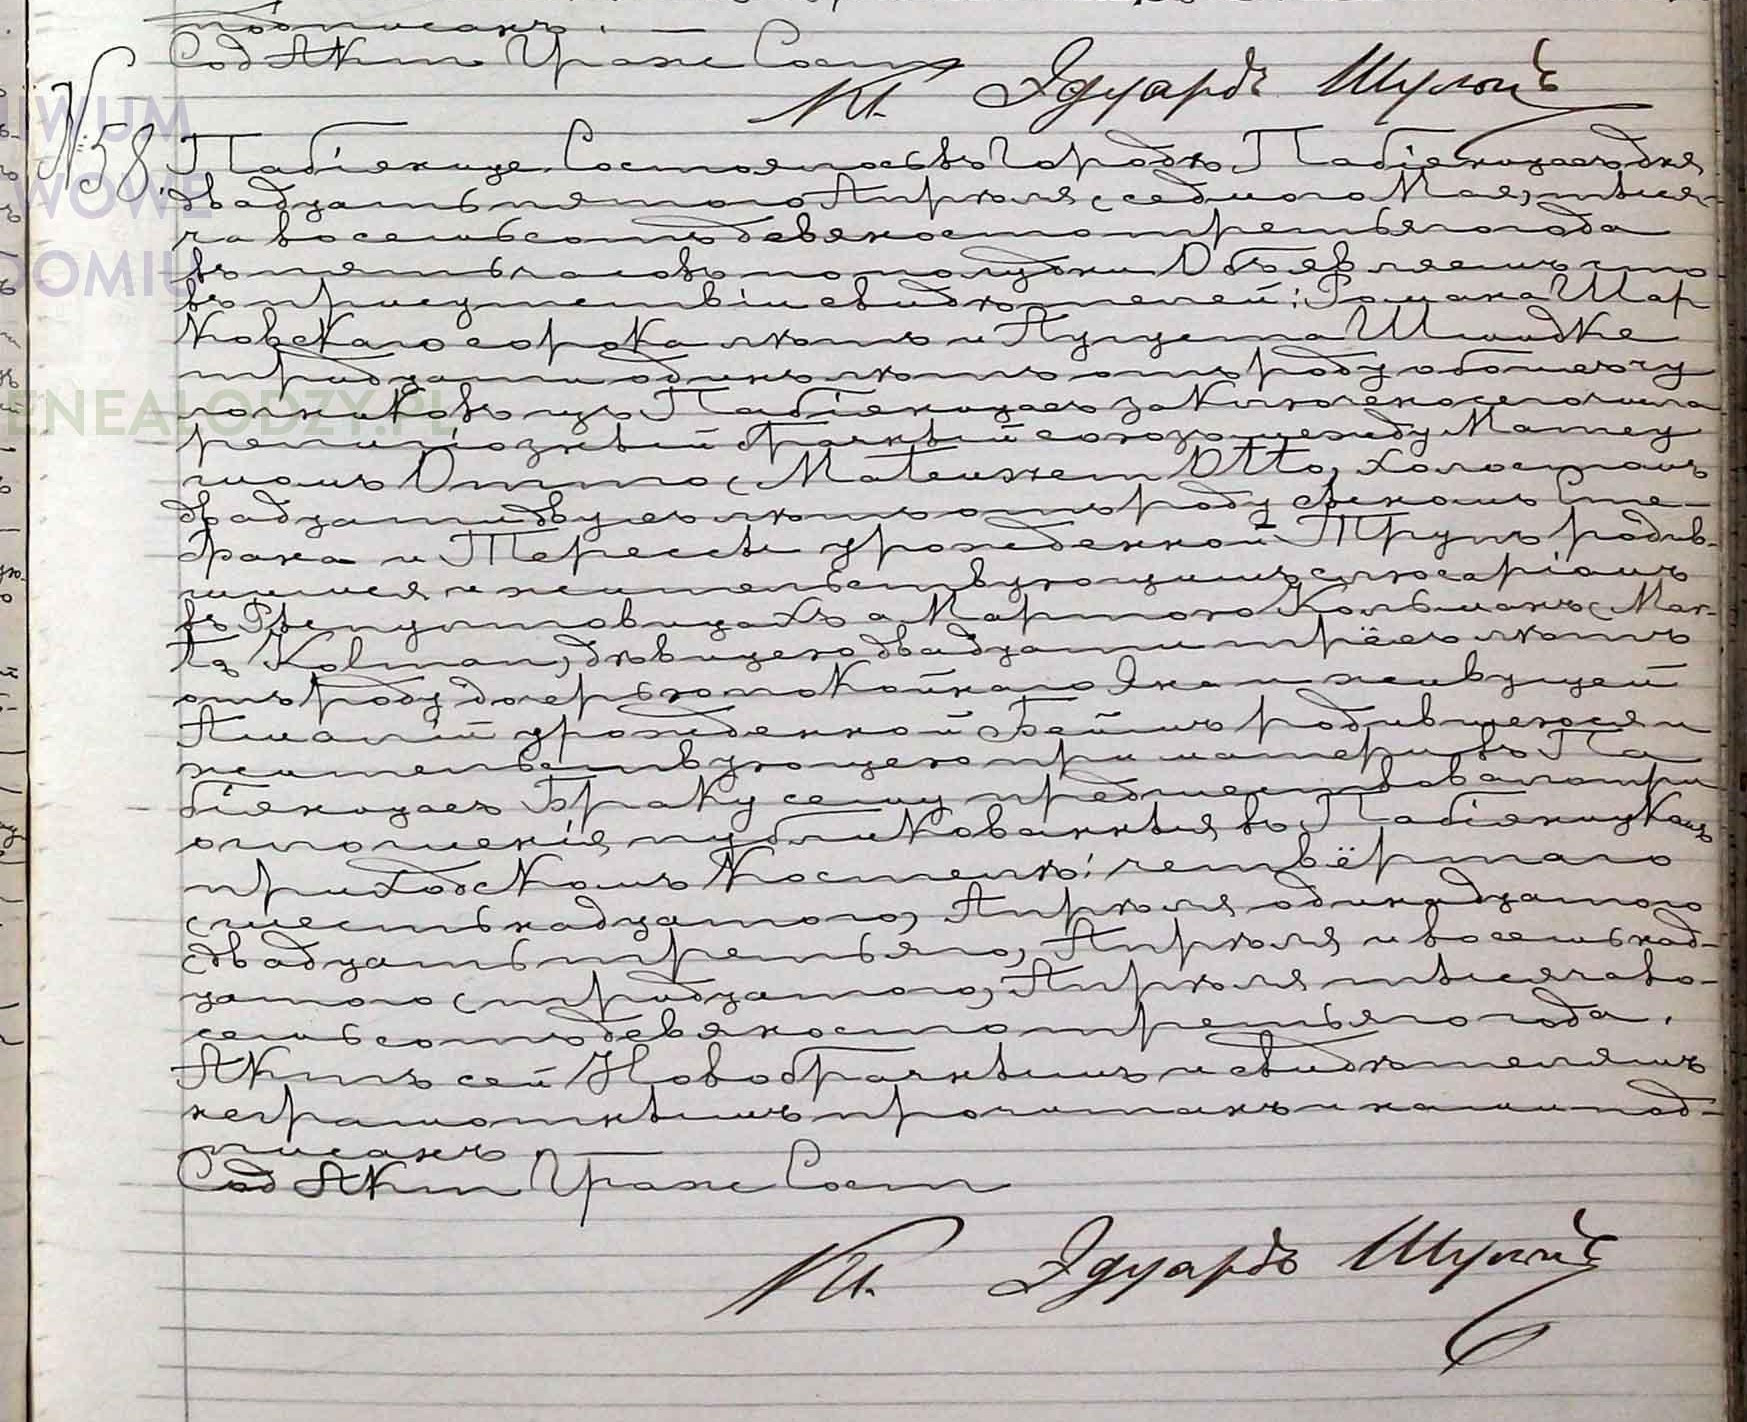 подписанъ.
Сод Акт Граж Сост
Кс. Эдуардъ Шульцъ
№ 58.
Пабіяницe. Состоялось въ Городѣ Пабіяницахъ дня
двадцать пятого Апрѣля (седмого Мая) тыся-
ча восемьсотъ девяносто третьяго года
въ пять часовъ по полудни Объявляемъ что
въ присутствіи свидѣтелей: Романа Шар
Ковскаго сорока лѣтъ и Аугуста Шмидке
тридцати одинъ лѣтъ отъ роду обоихъ чу
лочниковъ изъ Пабіяницахъ заключено сего числа
религіозный брачный союзъ между Матеу
шомъ Отто (Mateuszem Otto) холостымъ
двадцати двухъ лѣтъ отъ роду сыномъ Сте-
фана и Терессы урожденной Трупъ родив-
шимся и жительствующимъ слюсаріомъ
въ а Мартою Кольманъ (Mar-
tą Kolman) дѣвицею двадцати трёхъ лѣтъ
отъ роду дочерью покойнаго Яна и живущей
Амалій урожденной Беймъ родившеюся и
жительствующею при матери въ Па
біяницахъ Браку сему предшествовало три
оглошенія публикованныя въ Пабіяницкомъ
приходскомъ Костелѣ: четвёртаго
(шестьнадцатого) Апрѣля одинадцатого
(двадцать третьяго) Апрѣля и восемьнад-
цатого (тридцатого) Апрѣля тысяча во-
семьсотъ девяносто третьяго года.
Актъ сей Новобрачнымъ и свидѣтелямъ
неграмотнымъ прочитанъ и нами под-
писанъ.
Сод Акт Граж Сост
Кс. Эдуардъ Шульцъ
IWUM
WOWE
DOMIU
ENEALODZY.PL